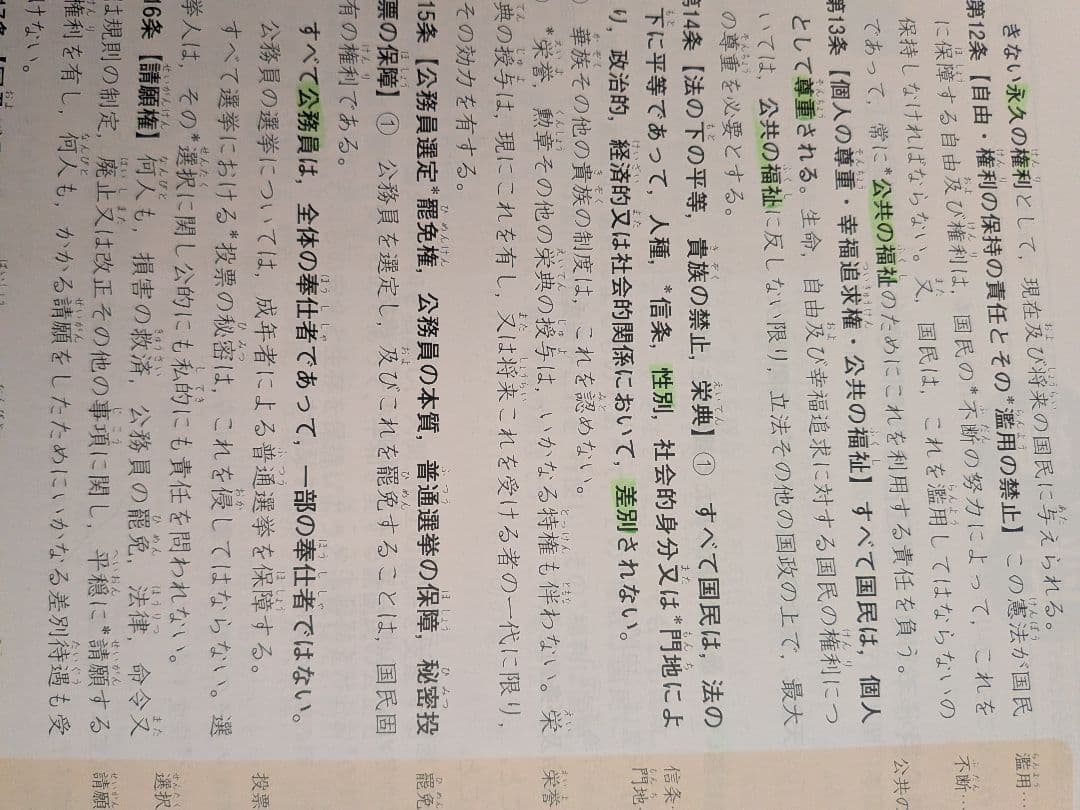 きない永久の権利として，現在及び将来の国民に与えられる。
第12条【自由・権利の保持の責任とその*濫用の禁止】 この憲法が国民
に保障する自由及び権利は，国民の*不断の努力によって，これを
保持しなければならない。又，国民は，これを濫用してはならないの
であって，常に*公共の福祉のためにこれを利用する責任を負う。
第13条【個人の尊重・幸福追求権・公共の福祉】 すべて国民は，個人
として尊重される。生命，自由及び幸福追求に対する国民の権利につ
いては，公共の福祉に反しない限り，立法その他の国政の上で，最大
の尊重を必要とする。
第14条【法の下の平等，貴族の禁止，栄典】① すべて国民は，法の
下に平等であって，人種，*信条，性別，社会的身分又は*門地によ
り，政治的，経済的又は社会的関係において，差別されない。
華族その他の貴族の制度は，これを認めない。
*栄誉，勲章その他の栄典の授与は，いかなる特権も伴わない。栄
典の授与は，現にこれを有し，又は将来これを受ける者の一代に限り，
その効力を有する。
15条【公務員選定*罷免権，公務員の本質，普通選挙の保障，秘密投
票の保障】① 公務員を選定し，及びこれを罷免することは，国民固
有の権利である。
すべて公務員は，全体の奉仕者であって，一部の奉仕者ではない。
公務員の選挙については，成年者による普通選挙を保障する。
すべて選挙における*投票の秘密は，これを侵してはならない。選
挙人は，その*選択に関し公的にも私的にも責任を問われない。
16条【請願権】 何人も，損害の救済，公務員の罷免，法律，命令又
は規則の制定，廃止又は改正その他の事項に関し，平穏に*請願する
権利を有し，何人も，かかる請願をしたためにいかなる差別待遇も受
けない。
濫用…
不断…
公共の
信条…
門地…
栄誉
罷免
投票
選択
請願